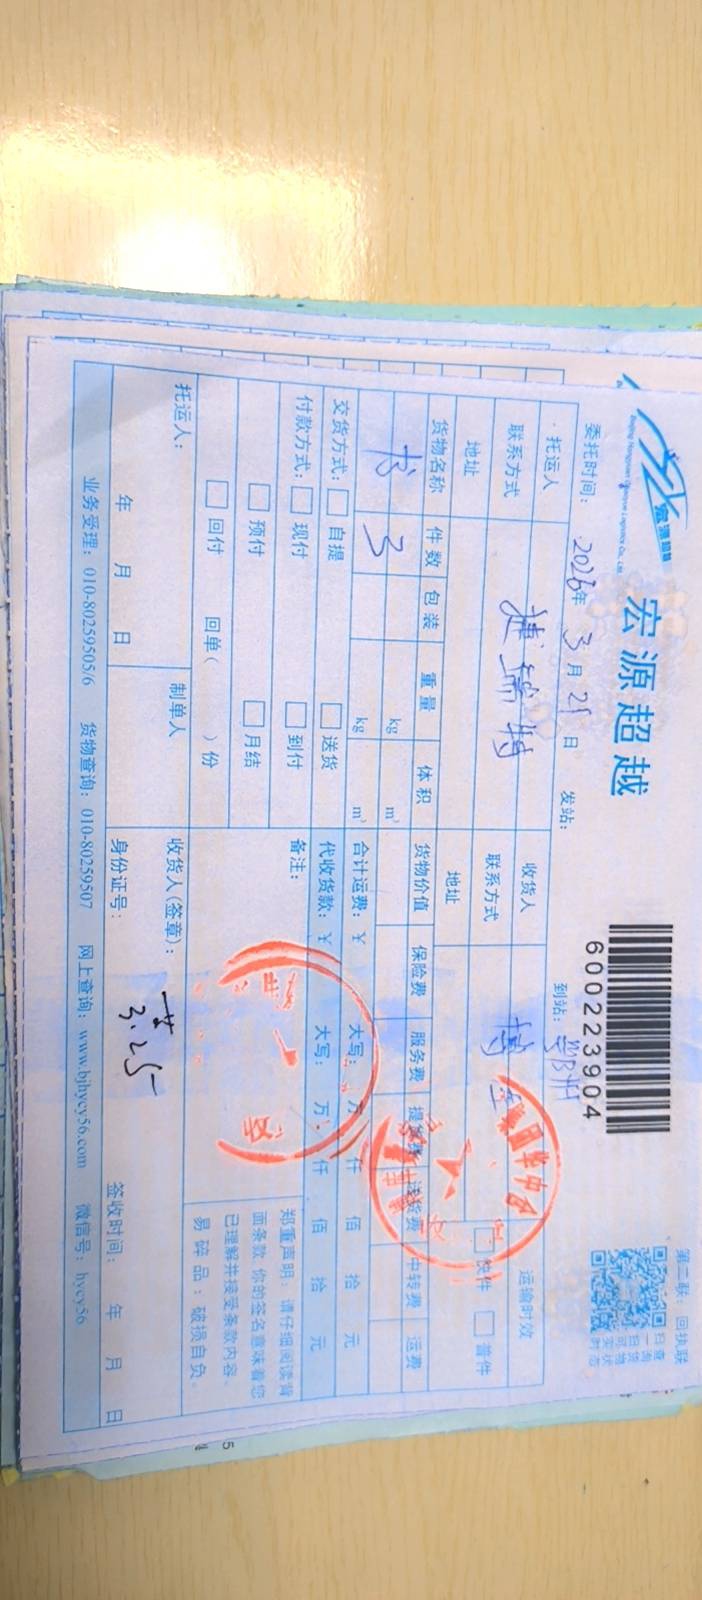 宏源超越
宏源超越
600223904
第二联：回执联
委托时间：2026年 3月 21日 发站： 到站：
托运人 捷锦特 收货人 博 运输时效
联系方式 联系方式 快件 普件
地址 地址
货物名称 件数 包装 重量 体积 货物价值 保险费 服务费 提货费 送货费 中转费 运费
书 3 kg m³
kg m³
交货方式： 自提 送货 合计运费：¥ 大写： 万 仟 佰 拾 元
付款方式： 现付 到付 代收货款：¥ 大写： 万 仟 佰 拾 元
预付 月结 备注：
回付 回单（ ）份
郑重声明：请仔细阅读背
面条款，你的签名意味着您
已理解并接受条款内容。
易碎品：破损自负。
托运人： 制单人 收货人(签章)：
3.25
年 月 日 身份证号： 签收时间： 年 月 日
业务受理：010-80259505/6 货物查询：010-80259507 网上查询：www.bjhycy56.com 微信号：hycy56